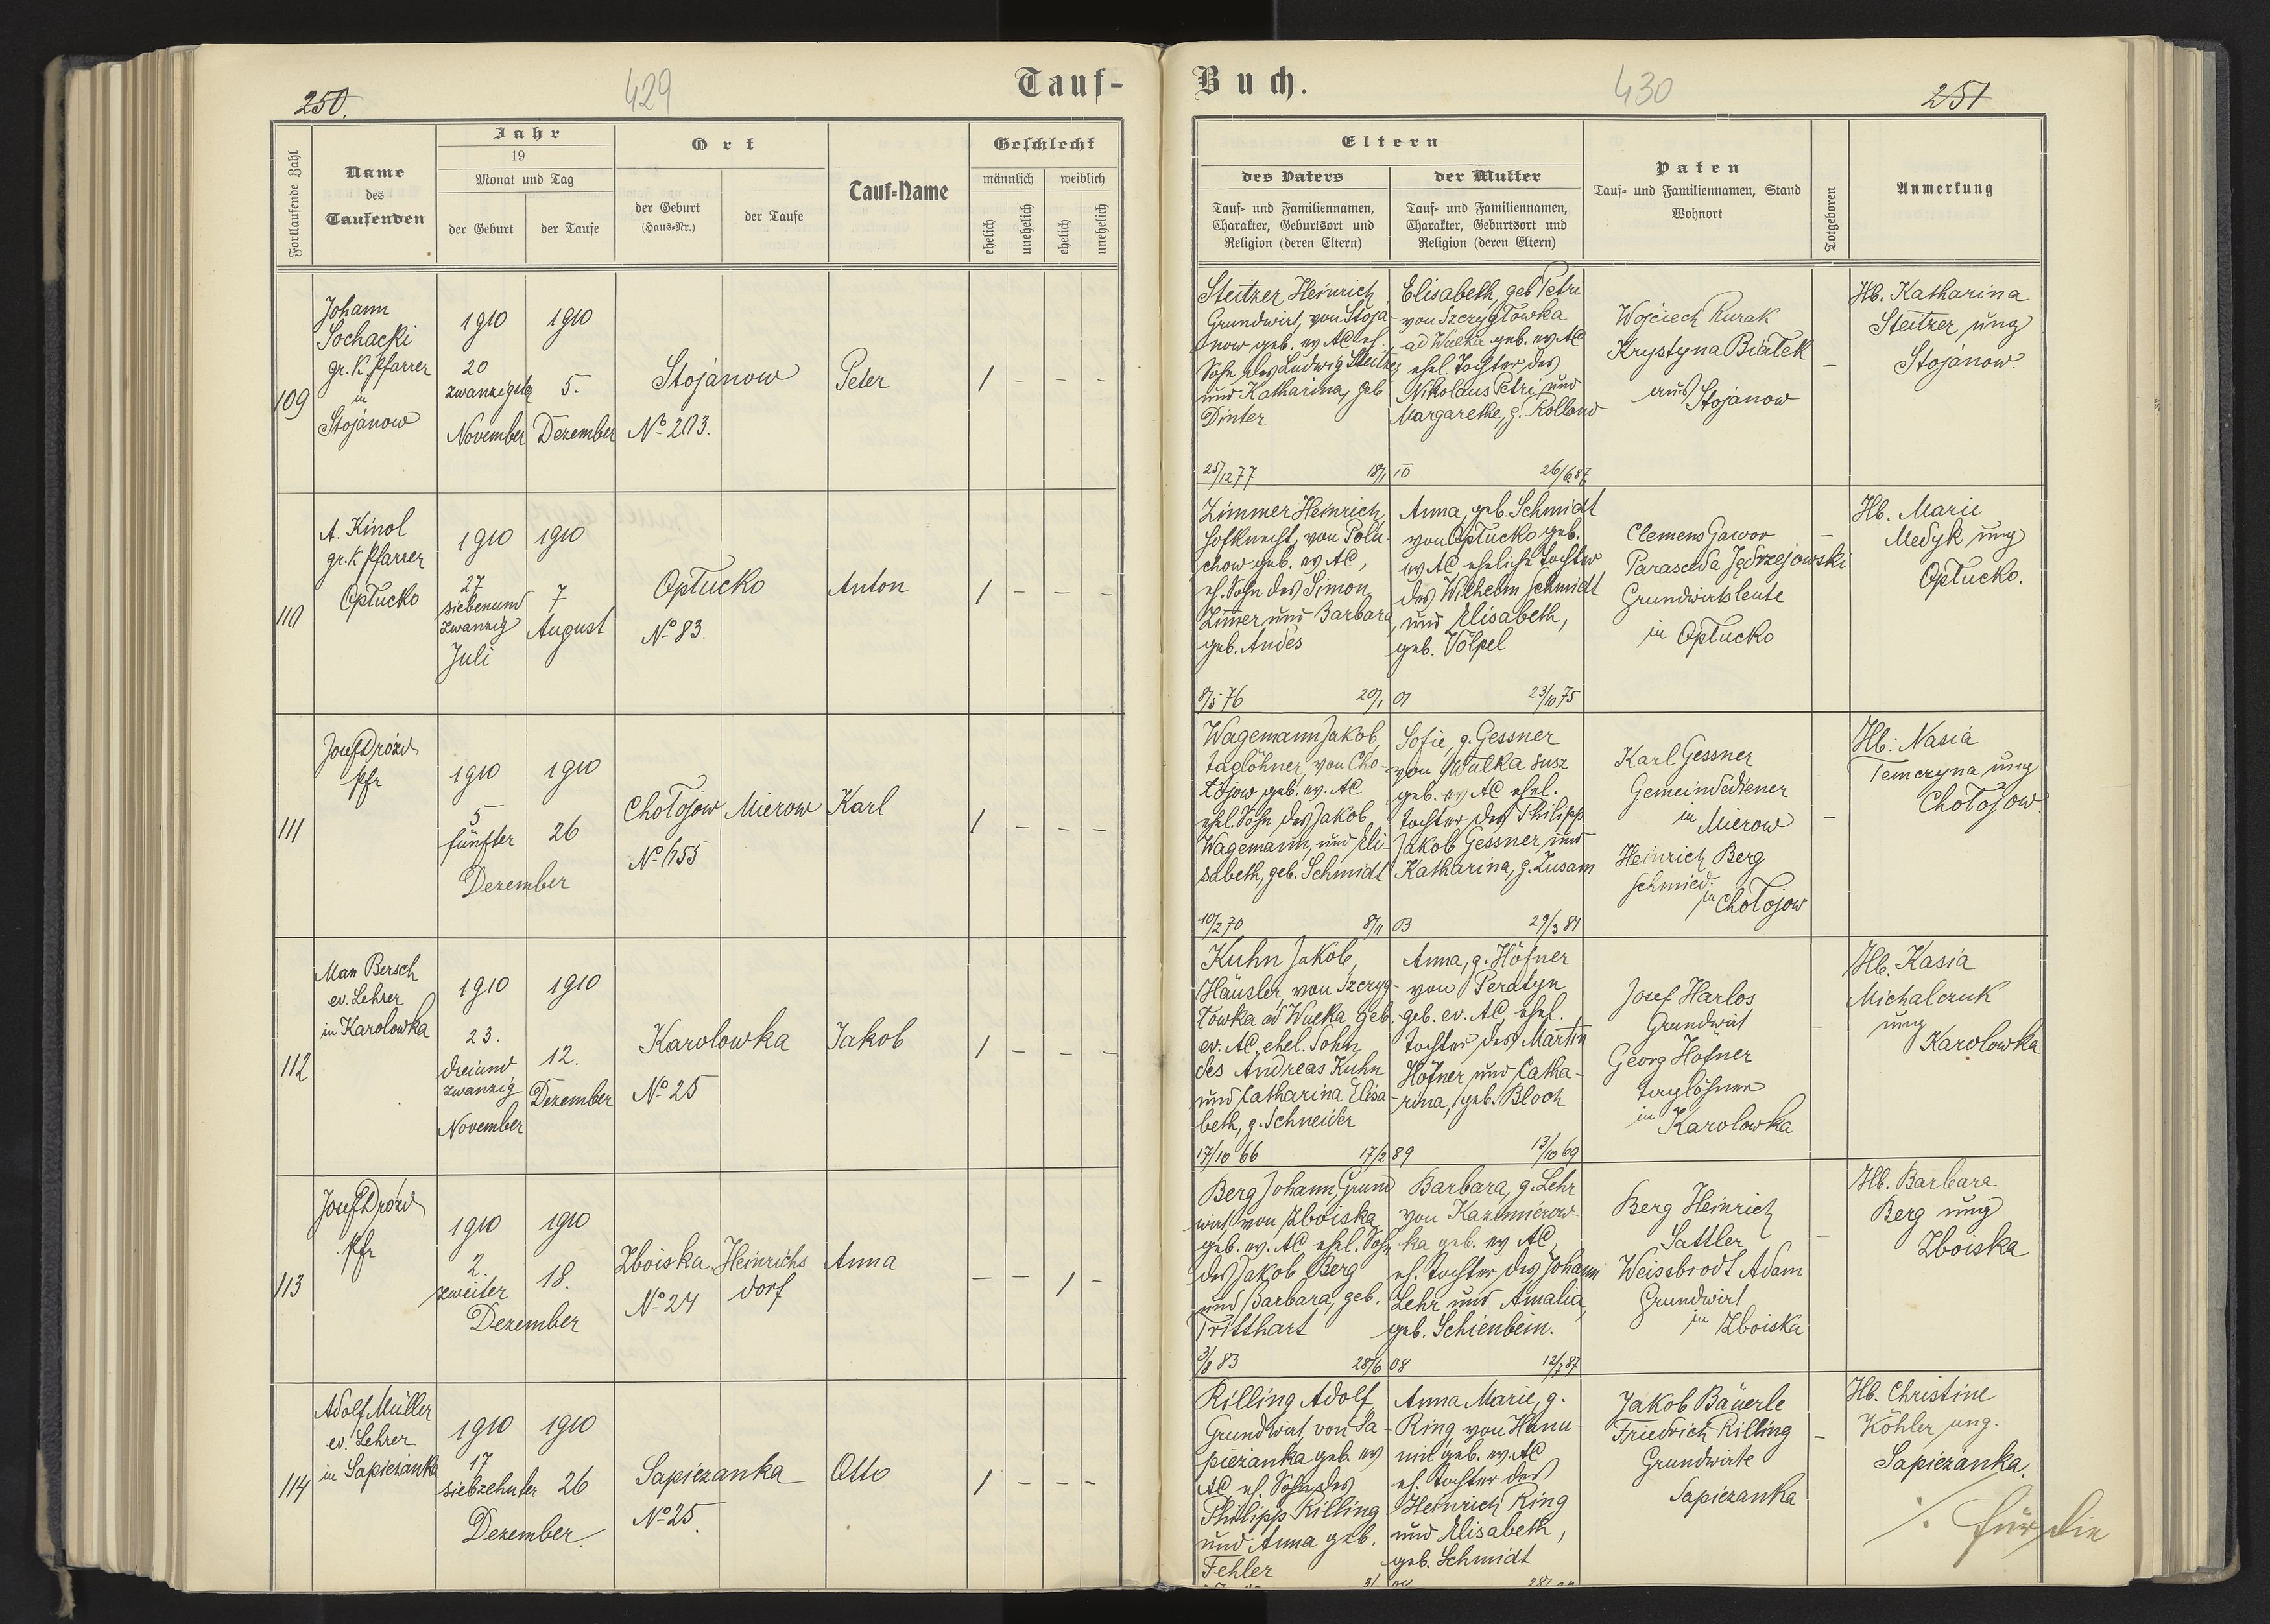 250.
429
Tauf-
Fortlaufende Zahl
Name
des
Taufenden
Jahr
19
Monat und Tag
der Geburt
der Taufe
Ort
der Geburt
(Haus-Nr.)
der Taufe
Tauf-Name
Geschlecht
männlich
weiblich
ehelich
unehelich
ehelich
unehelich
109
Johann
Sochacki
gr. K. Pfarrer
in
Stojanow
1910
20
zwanzigster
November
1910
5.
Dezember
Stojanow
Nº 203.
Peter
1 - - -
110
A. Kinol
gr. K Pfarrer
Opłucko
1910
27
siebenund
zwanzig
Juli
1910
7
August
Opłucko
Nº 83.
Anton
1 - - -
111
Josef Drózd
Pfr
1910
5
fünfter
1910
26
Dezember
Chołojow
Nº 655
Mierow
Karl
1 - - -
112
Max Bersch
ev. Lehrer
in Karolowka
1910
23.
dreiund
zwanzig
November
1910
12.
Dezember
Karolowka
Nº 25
Jakob
1 - - -
113
Josef Drózd
Pfr
1910
2.
zweiter
1910
18.
Dezember
Zboiska
Nº 24
Heinrichs
dorf
Anna
- - 1 -
114
Adolf Müller
ev. Lehrer
in Sapiezanka
1910
17
siebzehnter
1910
26
Dezember
Sapiezanka
Nº 25.
Otto
1 - - -
Buch.
430
251
Eltern
des Vaters
Tauf- und Familiennamen,
Charakter, Geburtsort und
Religion (deren Eltern)
der Mutter
Tauf- und Familiennamen,
Charakter, Geburtsort und
Religion (deren Eltern)
Paten
Tauf- und Familiennamen, Stand
Wohnort
Totgeboren
Anmerkung
Steitzer Heinrich
Grundwirt, von Stoja-
now geb. ev AC eh.
Sohn des Ludwig Steitzer
und Katharina, geb
Dinter
25/12 77
18/1 10
Elisabeth, geb Petri
von Szczygłowka
ad Wulka geb. ev AC
ehel. Tochter des
Nikolaus Petri und
Margarethe, g. Rolland
26/6 87
Wojciech Kurak
Krystyna Białek
aus Stojanow
-
Hb. Katharina
Steitzer ung
Stojanow.
Zimmer Heinrich
Hofknecht, von Polu-
chow geb. ev AC,
eh. Sohn des Simon
Zimer und Barbara
geb. Andes
8/5 76
20/1 01
Anna, geb. Schmidt
von Opłucko geb.
ev AC eheliche Tochter
des Wilhelm Schmidt
und Elisabeth,
geb. Völpel
23/10 75
Clemens Gawor
Parascda Jędrzejowski
Grundwirtsleute
in Opłucko
-
Hb. Marie
Medyk ung
Opłucko.
Wagemann Jakob,
Taglöhner, von Cho-
łojow geb. ev. AC
ehel. Sohn des Jakob
Wagemann, und Eli-
sabeth, geb. Schmidt
10/2 70
8/11 03
Sofie, g. Gessner
von Wulka susz
geb. ev AC ehel.
Tochter des Philipp
Jakob Gessner und
Katharina, g. Zusam
29/3 81
Karl Gessner
Gemeindediener
in Mierow
Heinrich Berg
Schmied.
in Chołojow
-
Hb: Nasia
Temczyna ung
Chołojow
Kuhn Jakob,
Häusler, von Szczyg-
łowka ad Wulka geb.
ev. AC, ehel. Sohn
des Andreas Kuhn
und Catharina Elisa
beth, g. Schneider
17/10 66
17/2 89
Anna, g. Höfner
von Peratyn
geb. ev. AC, ehel.
Tochter des Martin
Höfner und Catha-
rina, geb. Bloch
13/10 69
Josef Harlos
Grundwirt
Georg Höfner
Taglöhner
in Karolowka
-
Hb. Kasia
Michalczuk
ung
Karolowka
Berg Johann, Grund
wirt von Zboiska
geb. ev. AC ehel. Sohn
des Jakob Berg
und Barbara, geb.
Tritthart
3/8 83
28/6 08
Barbara, g. Lehr
von Kazimierow-
ka geb. ev AC,
eh. Tochter des Johann
Lehr und Amalia,
geb. Schienbein.
12/7 87
Berg Heinrich
Sattler
Weissbrodt Adam
Grundwirt
in Zboiska
-
Hb. Barbara
Berg ung
Zboiska
Rilling Adolf
Grundwirt von Sa-
piezanka geb. ev
AC eh. Sohn des
Philipp Rilling
und Anna geb.
Fehler
Anna Marie, g.
Ring, von Hanu-
nin geb. ev. AC
eh. Tochter des
Heinrich Ring
und Elisabeth,
geb. Schmidt
Jakob Bäuerle
Friedrich Rilling
Grundwirte
Sapiezanka
-
Hb. Christine
Köhler ung.
Sapiezanka.
für die